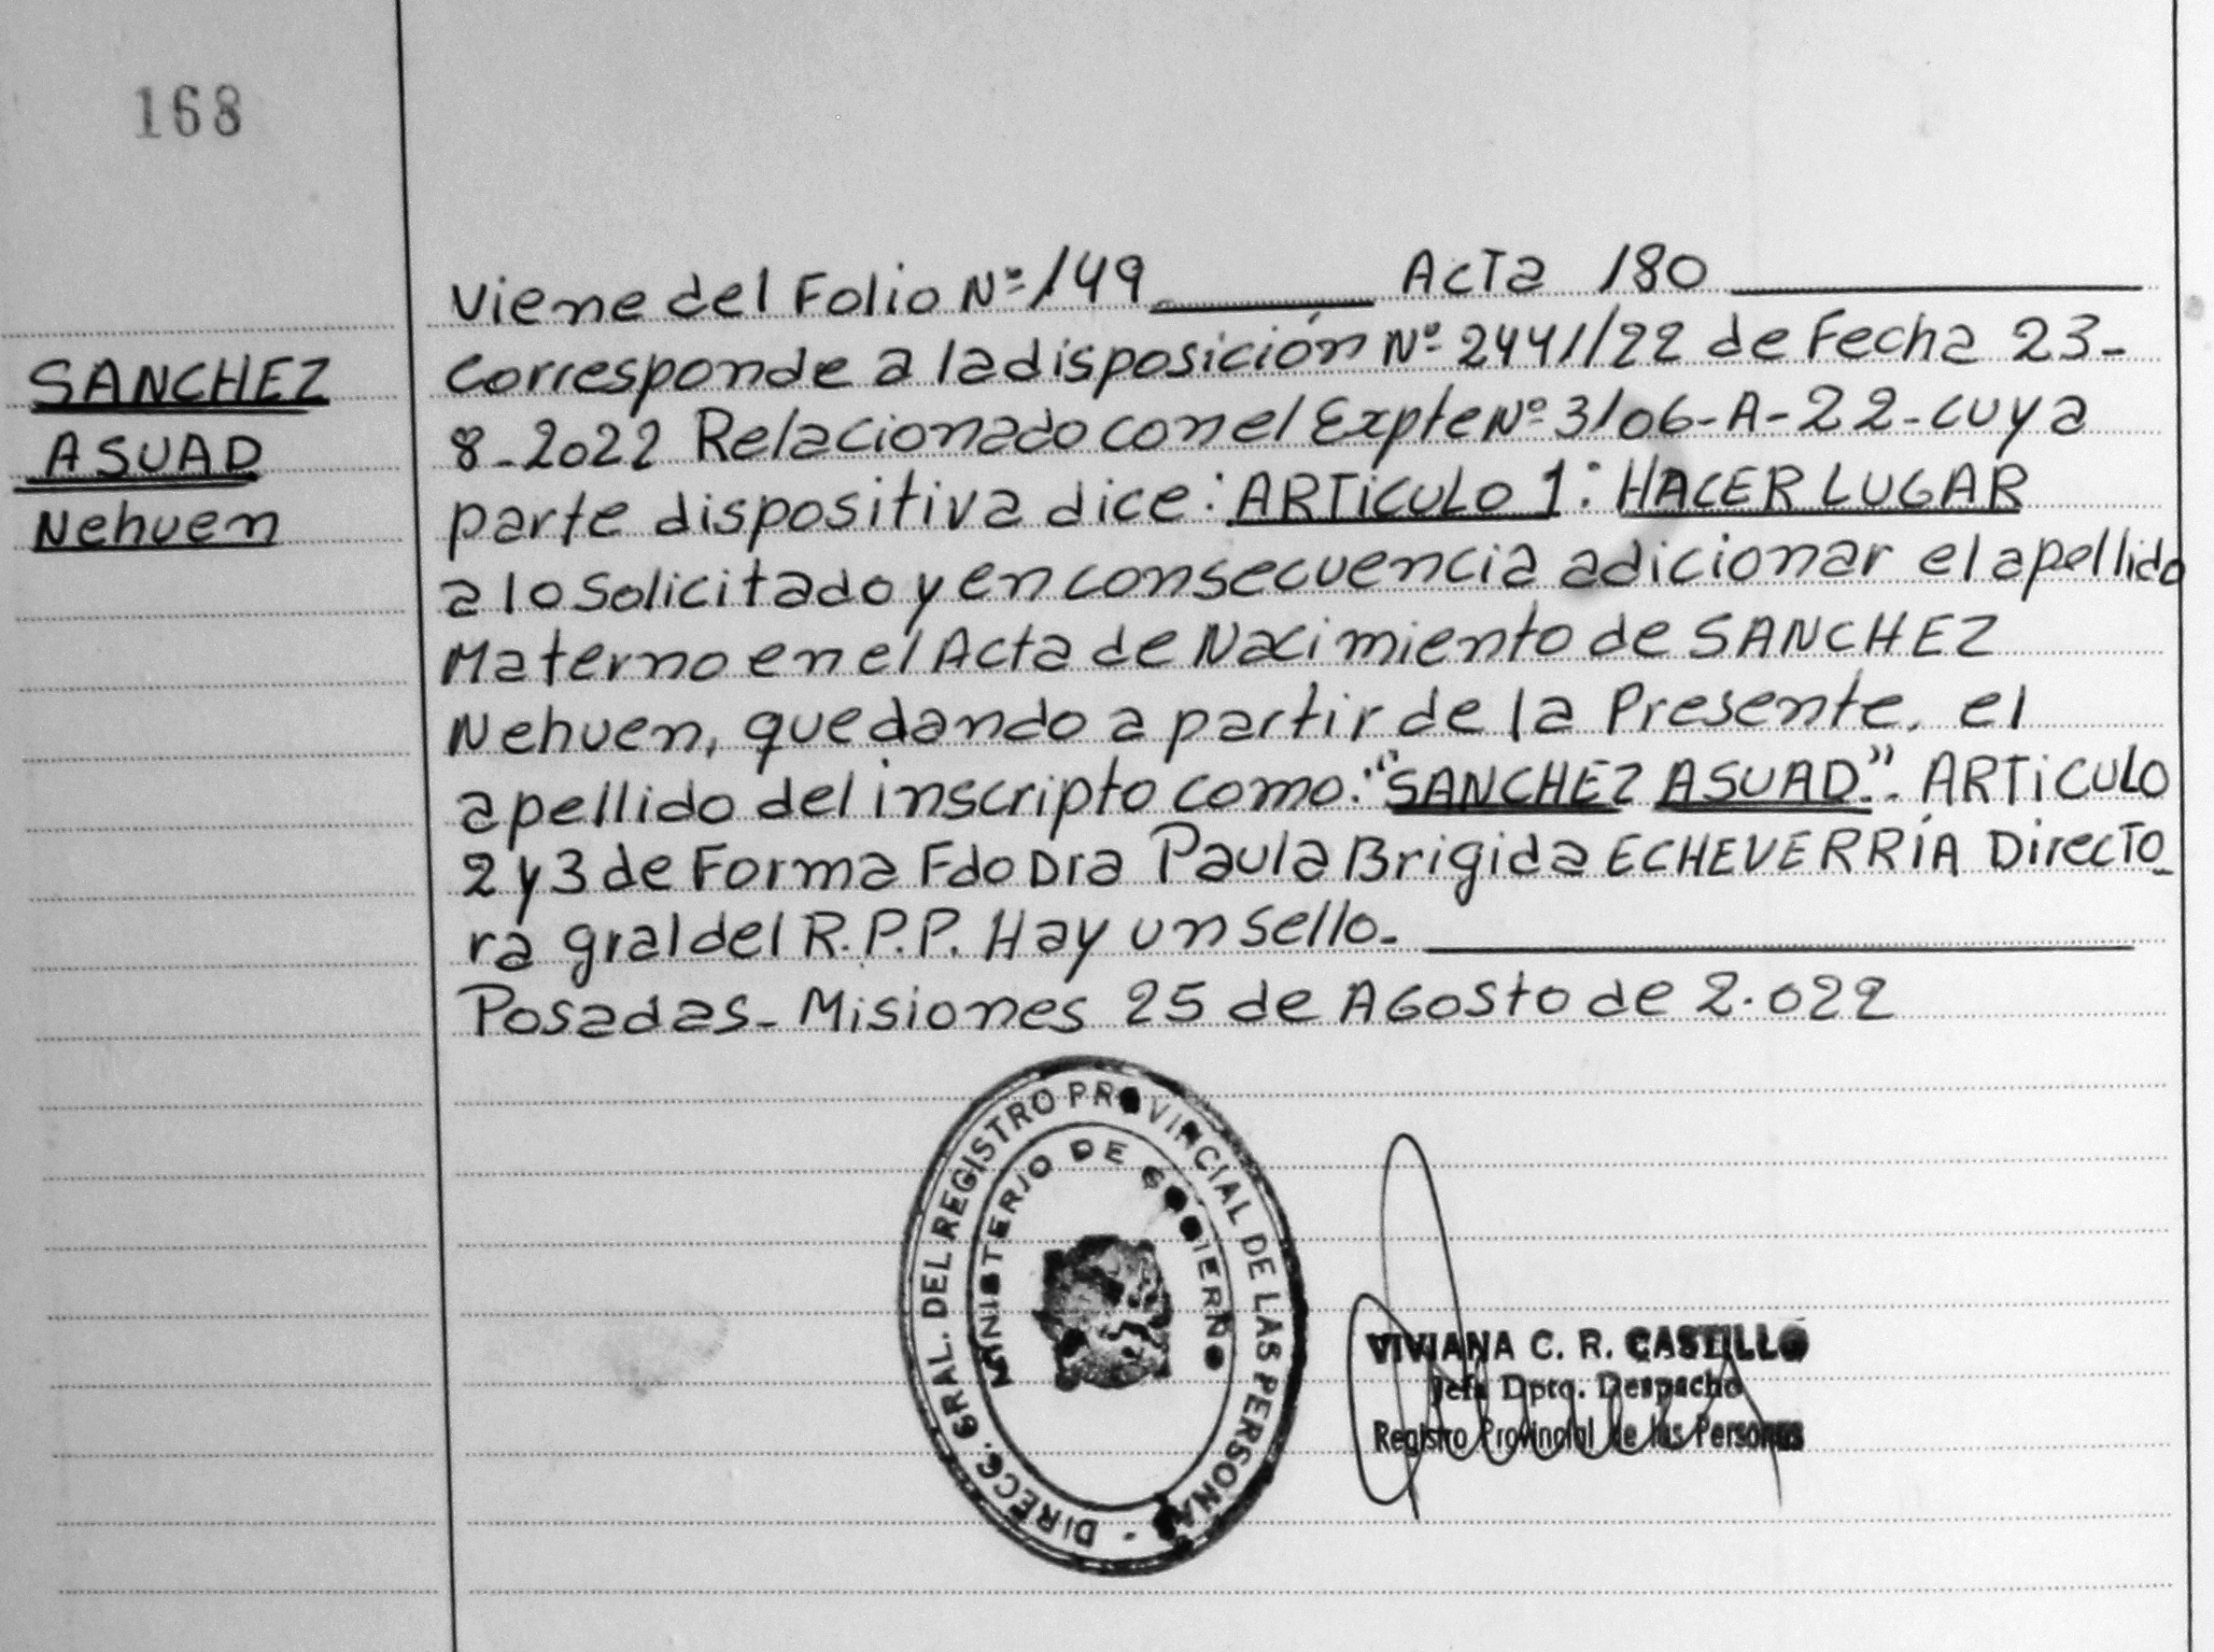 168
SANCHEZ
ASUAD
Nehuen
Viene del Folio Nº 149 ActA 180
Corresponde a la disposición Nº 2441/22 de Fecha 23-
8-2022 Relacionado con el Expte Nº 3106-A-22-cuya
parte dispositiva dice: ARTICULO 1: HACER LUGAR
a lo Solicitado y en consecuencia adicionar el apellido
Materno en el Acta de Nacimiento de SANCHEZ
Nehuen, quedando a partir de la Presente, el
apellido del inscripto como: "SANCHEZ ASUAD". ARTICULO
2 y 3 de Forma Fdo Dra Paula Brigida ECHEVERRÍA Directo-
ra gral del R.P.P. Hay un Sello.-
Posadas- Misiones 25 de AGosto de 2.022
DIRECC. GRAL. DEL REGISTRO PROVINCIAL DE LAS PERSONAS -
MINISTERIO DE GOBIERNO
VIVIANA C. R. CASTILLO
Jefa Dpto. Despacho
Registro Provincial de las Personas